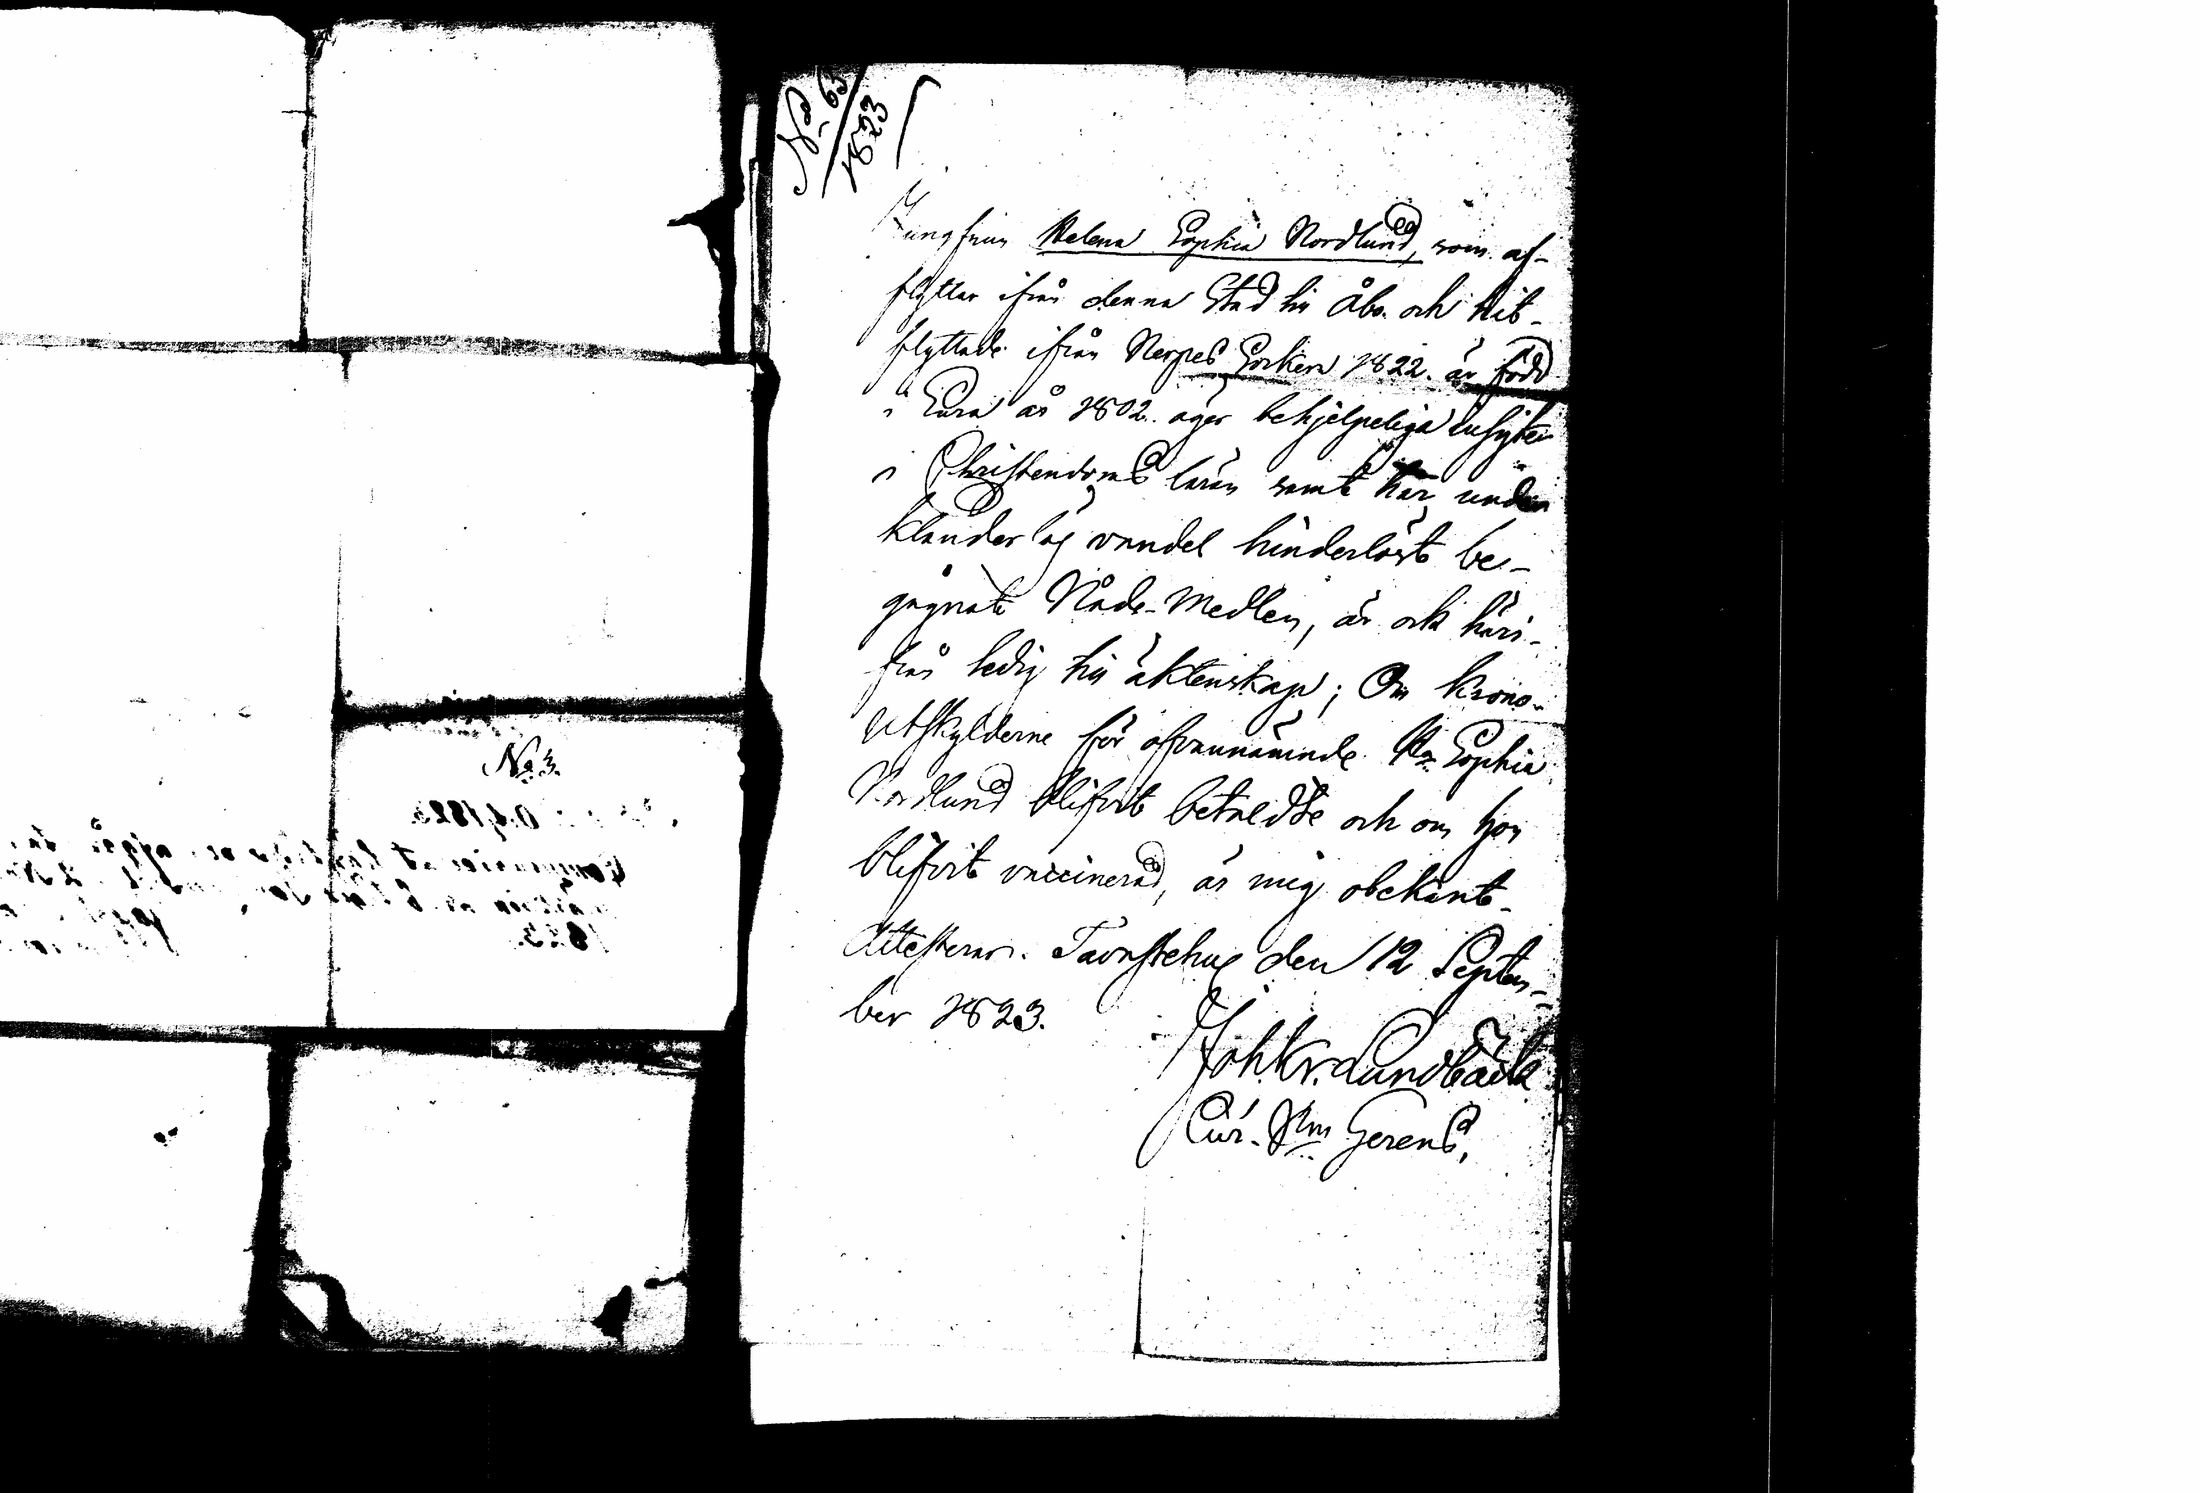 No 63
1823
Jungfrun Helena Sophia Nordlund, som af-
flyttar ifrån denna Stad till Åbo och hit-
flyttade ifrån Nerpes Socken 1822. är född
i Eura år 1802. äger behjelpeliga insigter
i Christendoms läran samt har under
klanderlös vandel hinderlöst be-
gagnat Nåde-Medlen, är och häri-
från ledig till äktenskap; Om Krono-
Utskylderne för ofvannämnde Ha Sophia
Nordlund blifvit betaldte och om hon
blifvit vaccinerad, är mig obekant.
Attesterar. Tavastehus den 12 Septem-
ber 1823.
Joh. Kr. Lundbäck
Cur. Vm Gerens.
No 3.